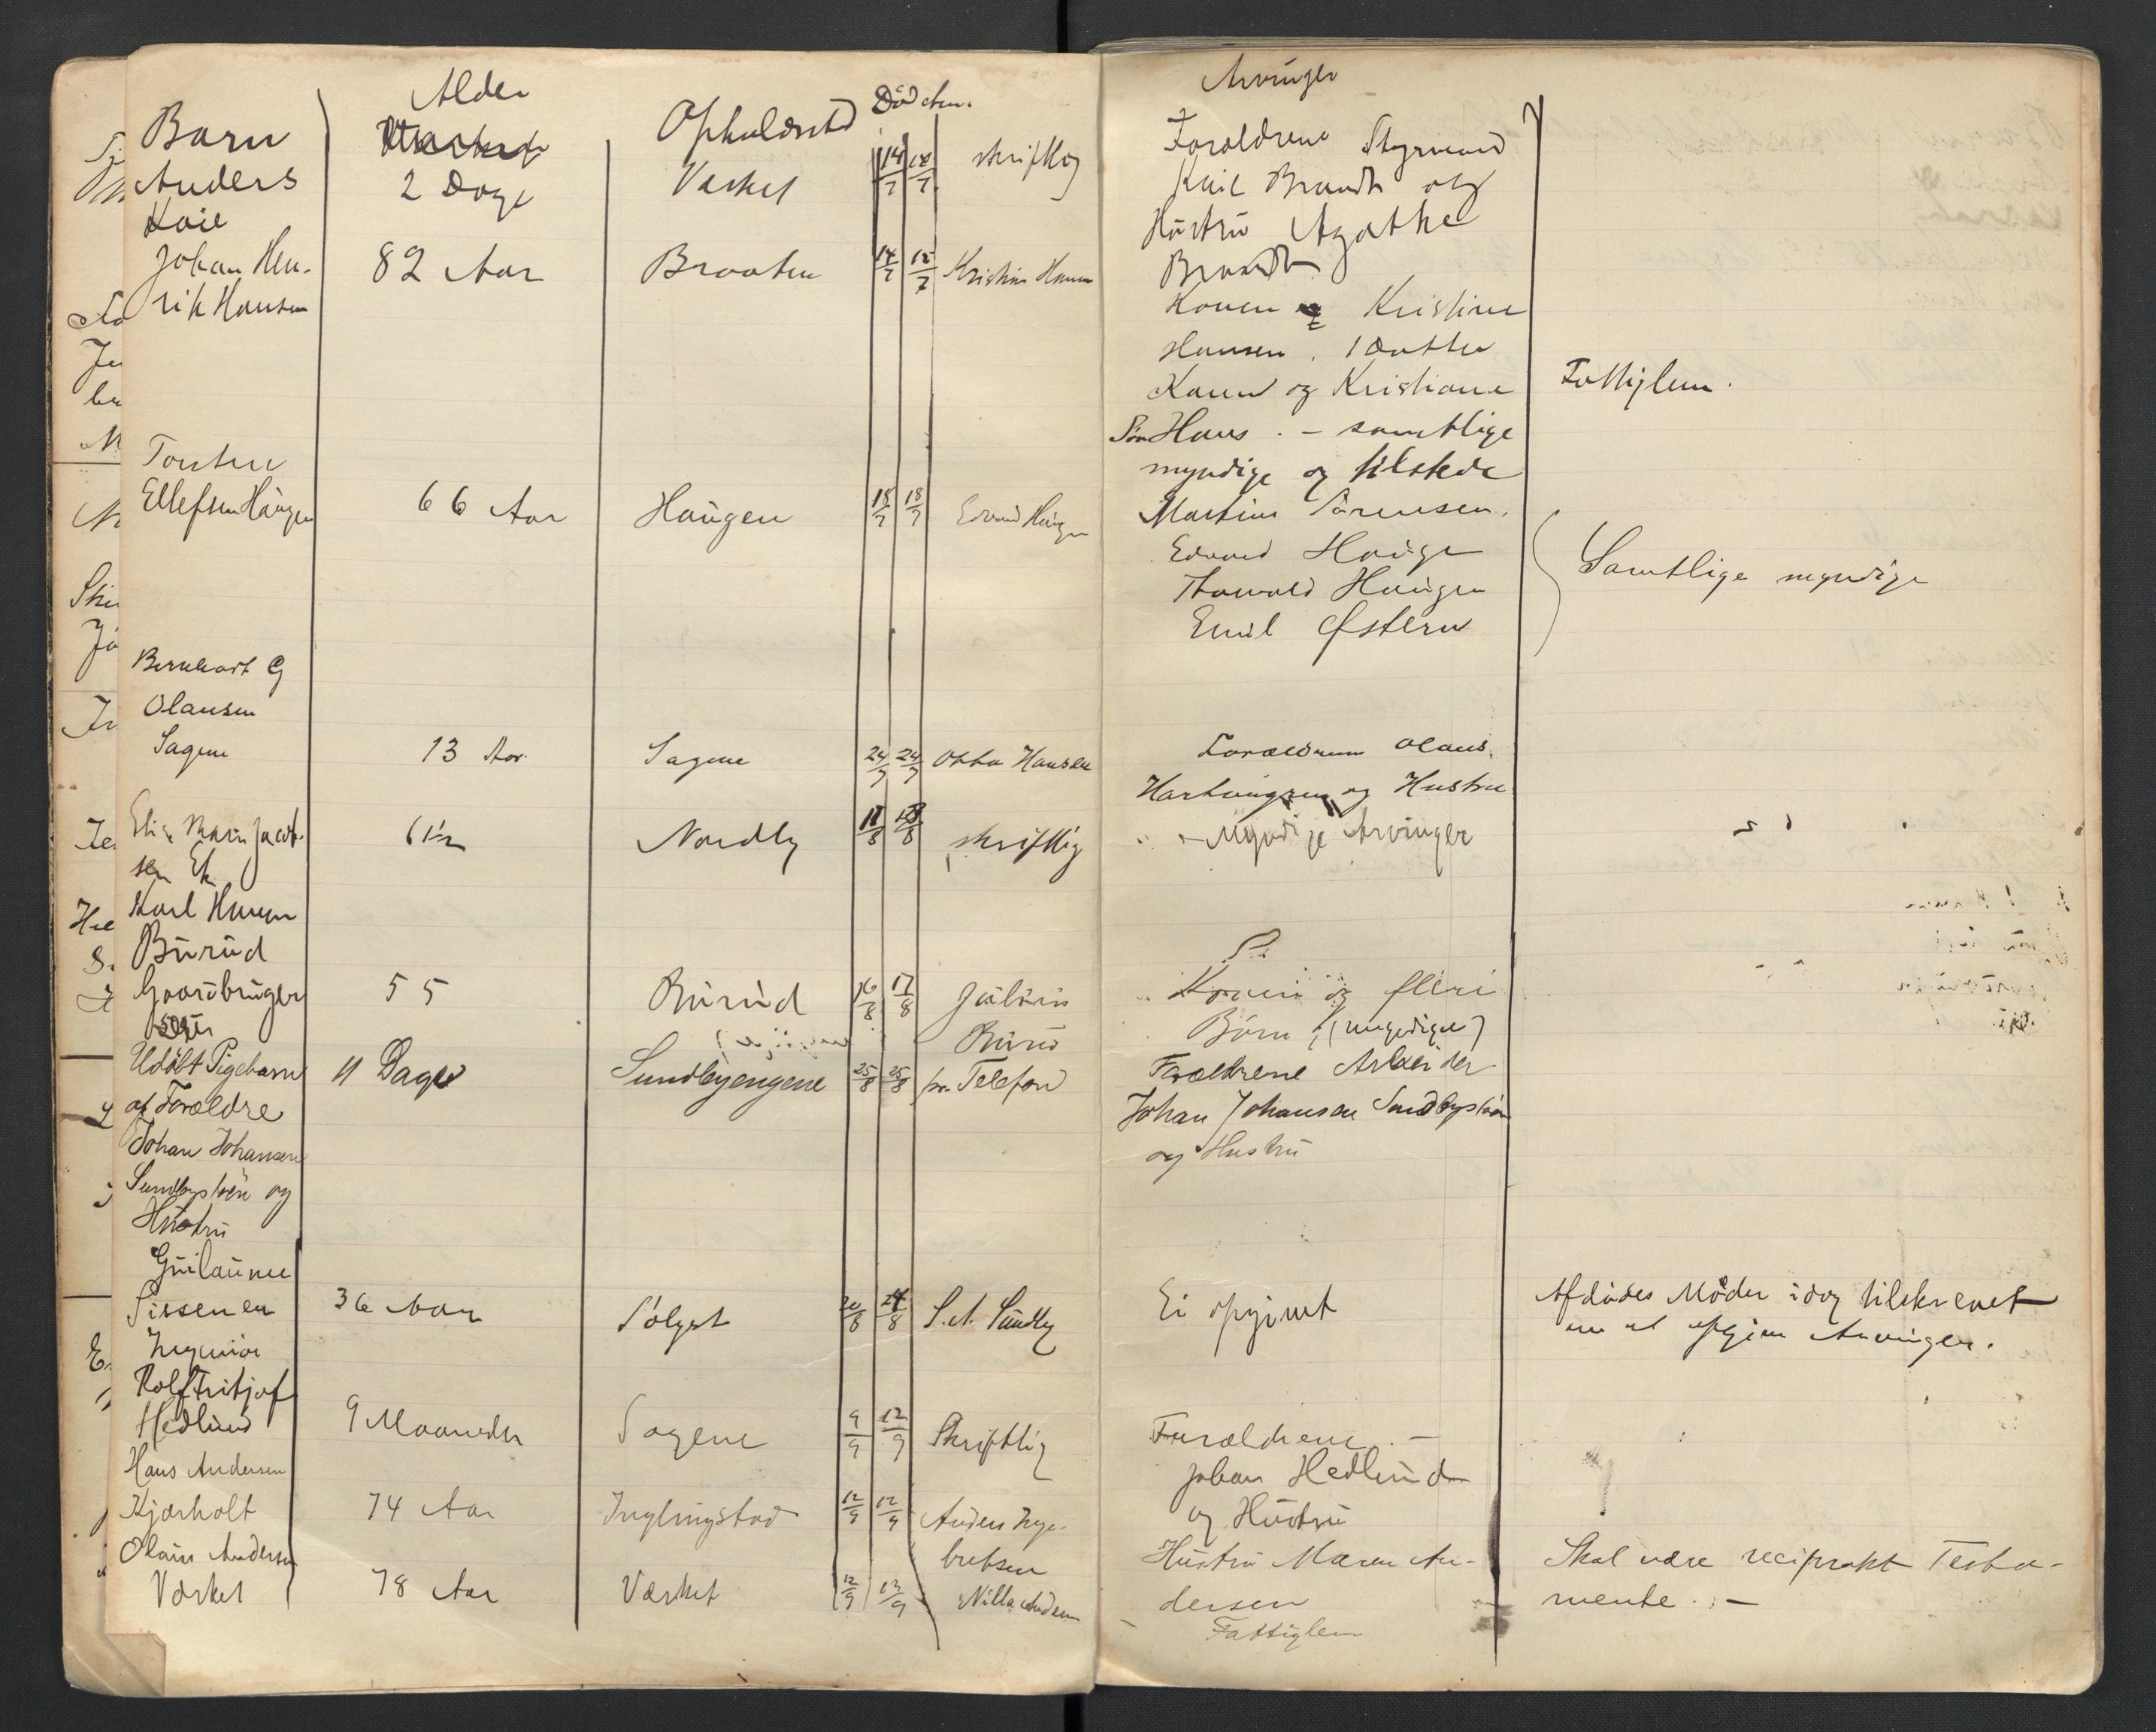 Alder
Opholdssted
Død
Arvinger
Barn
Anders
Kaie
2 Dage
Værket
14/7 18/7
skriftlig
Forældrene Styrmand
Kaie Brandt og
Hustru Agathe
Brandt
Johan Hen-
rik Hansen
82 Aar
Braaten
14/7 15/7
Kristian Hansen
Konen og Kristine
Hansen. 1 Datter
Karen og Kristiane
Søn Hans. - samtlige
myndige og tilstede
Fattiglem.
Torsten
Ellefsen Haugen
66 Aar
Haugen
18/7 18/7
Edvard Haugen
Martin Sørensen.
Edvard Haugen
Thorvald Haugen
Emil Østern
Samtlige myndige
Bernhart G
Olausen
Sagene
13 Aar
Sagene
24/7 24/7
Otto Hansen
Forældrene Olaus
og Hustru
Elise Marie Jacob-
sen Ek
61½
Nordby
11/8 13/8
skriftlig
Myndige Arvinger
Karl Hansen
Burud
Gaardbruger
55
Burud
16/8 17/8
Julius
Burud
Konen og flere
Børn (myndige)
Udøbt Pigebarn
af Forældre
Johan Johansen
Sundbyskøien og
Hustru
11 Dage
Sundbyengene
25/8 25/8
pr. Telefon
Forældrene Arbeider
Johan Johansen Sundbyskøien
og Hustru
Guilaume
Sissener
Ingeniør
36 Aar
Sølyst
20/8 24/8
S. A. Sundby
Ei opgivet
Afdødes Moder idag tilskrevet
om at opgive Arvinger.
Rolf Fritjof
Hedlund
9 Maaneder
Sagene
9/9 12/9
Skriftlig
Forældrene. -
Johan Hedlund
og Hustru
Hans Andersen
Kjærholt
74 Aar
Inglingstad
12/9 12/9
Anders Inge-
bretsen
Hustru Maren An-
dersen
Skal være reciprokt Testa-
mente. -
Olaus Andersen
Værket
78 Aar
Værket
12/9 13/9
Nilla Andersen
Fattiglem